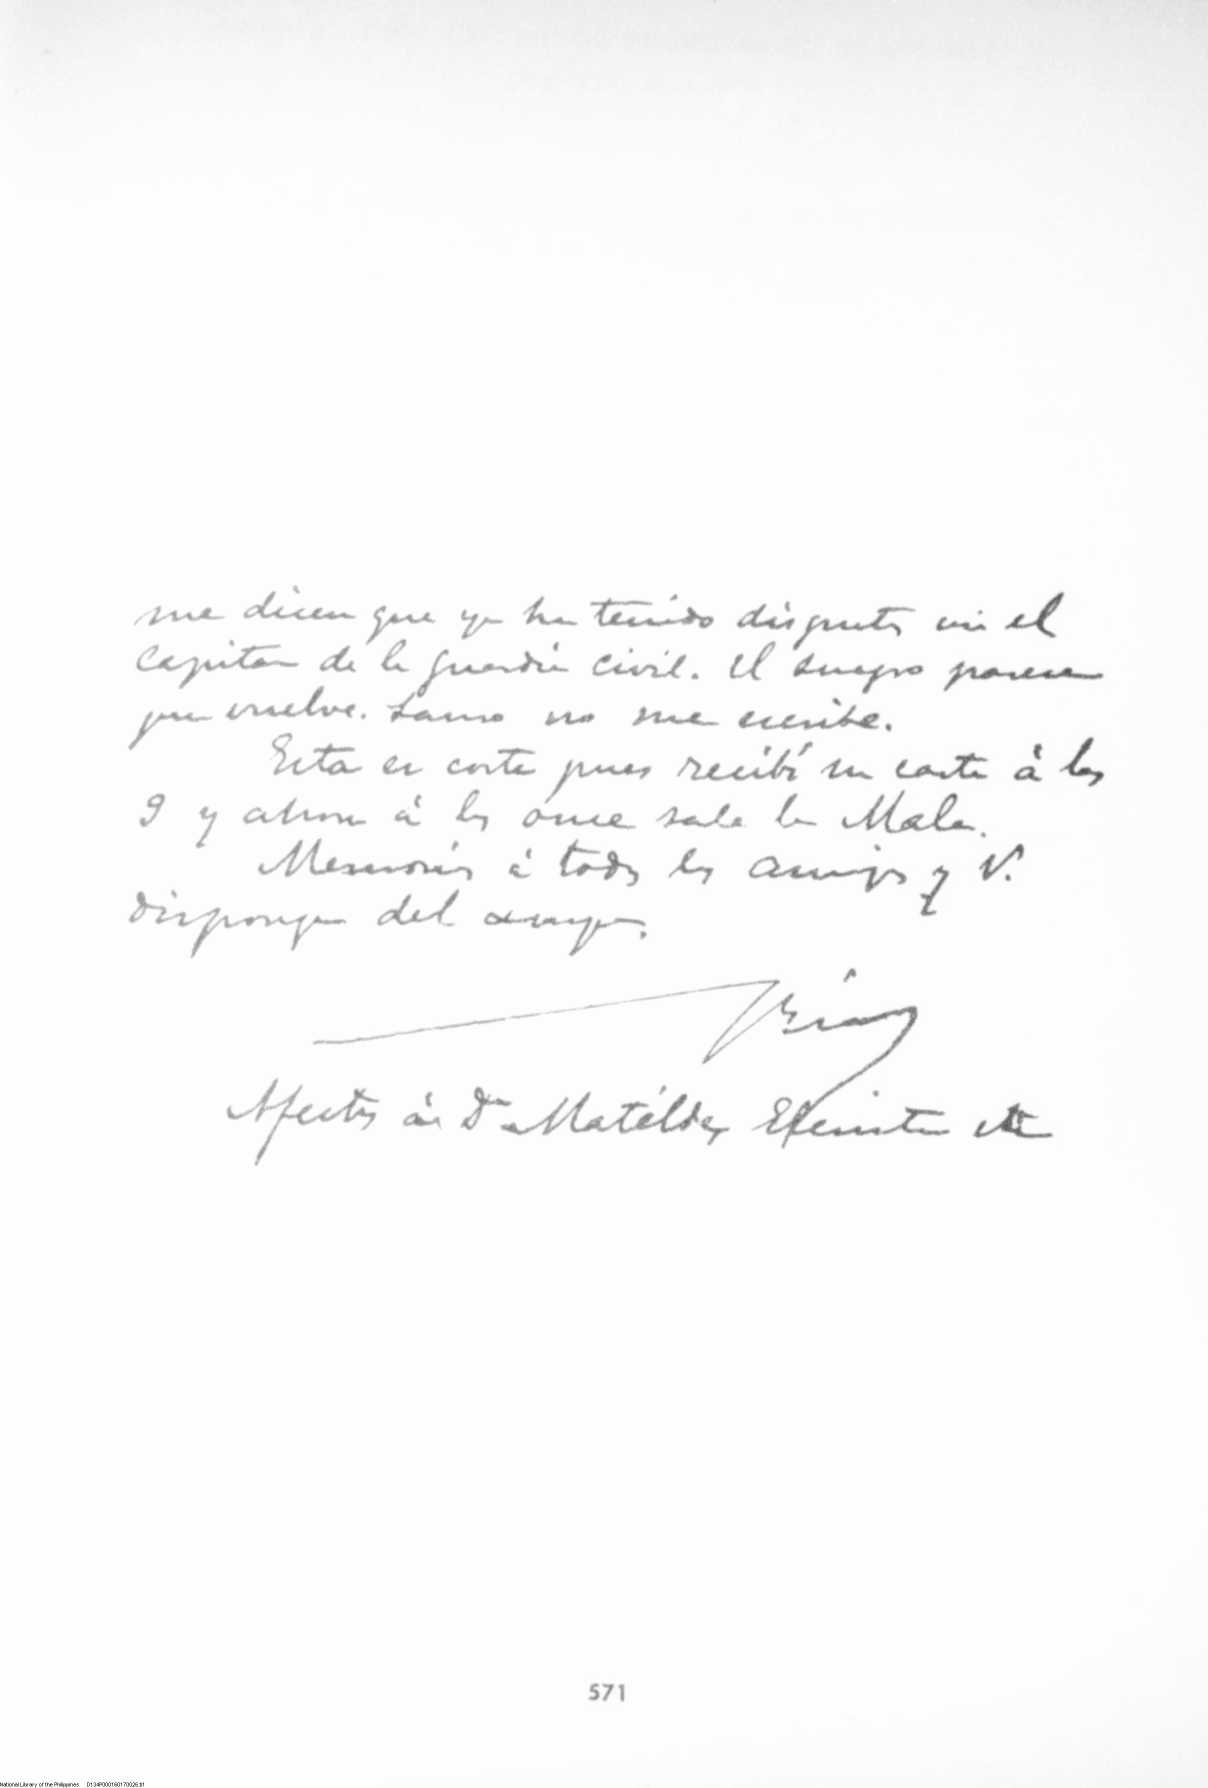 me dicen que ya ha tenido disgustos con el
Capitan de la guardia civil. El suegro parece
que vuelve. Lauro no me escribe.
Esta es corta pues recibí su carta á las
9 y ahora á las once sale la Mala.
Memorias á todos los amigos y V.
disponga del amigo.
Afectos á Dª Matilde,
571
National Library of the Philippines D134P000160170026.tif